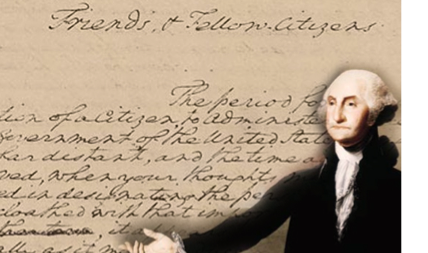 Friends, & Fellow-Citizens
The period fo
tion of a Citizen, to administe
Government of the United State
far distant, and the time a
ved, when your thoughts
ed in designating the per
cloathed with that impo
it